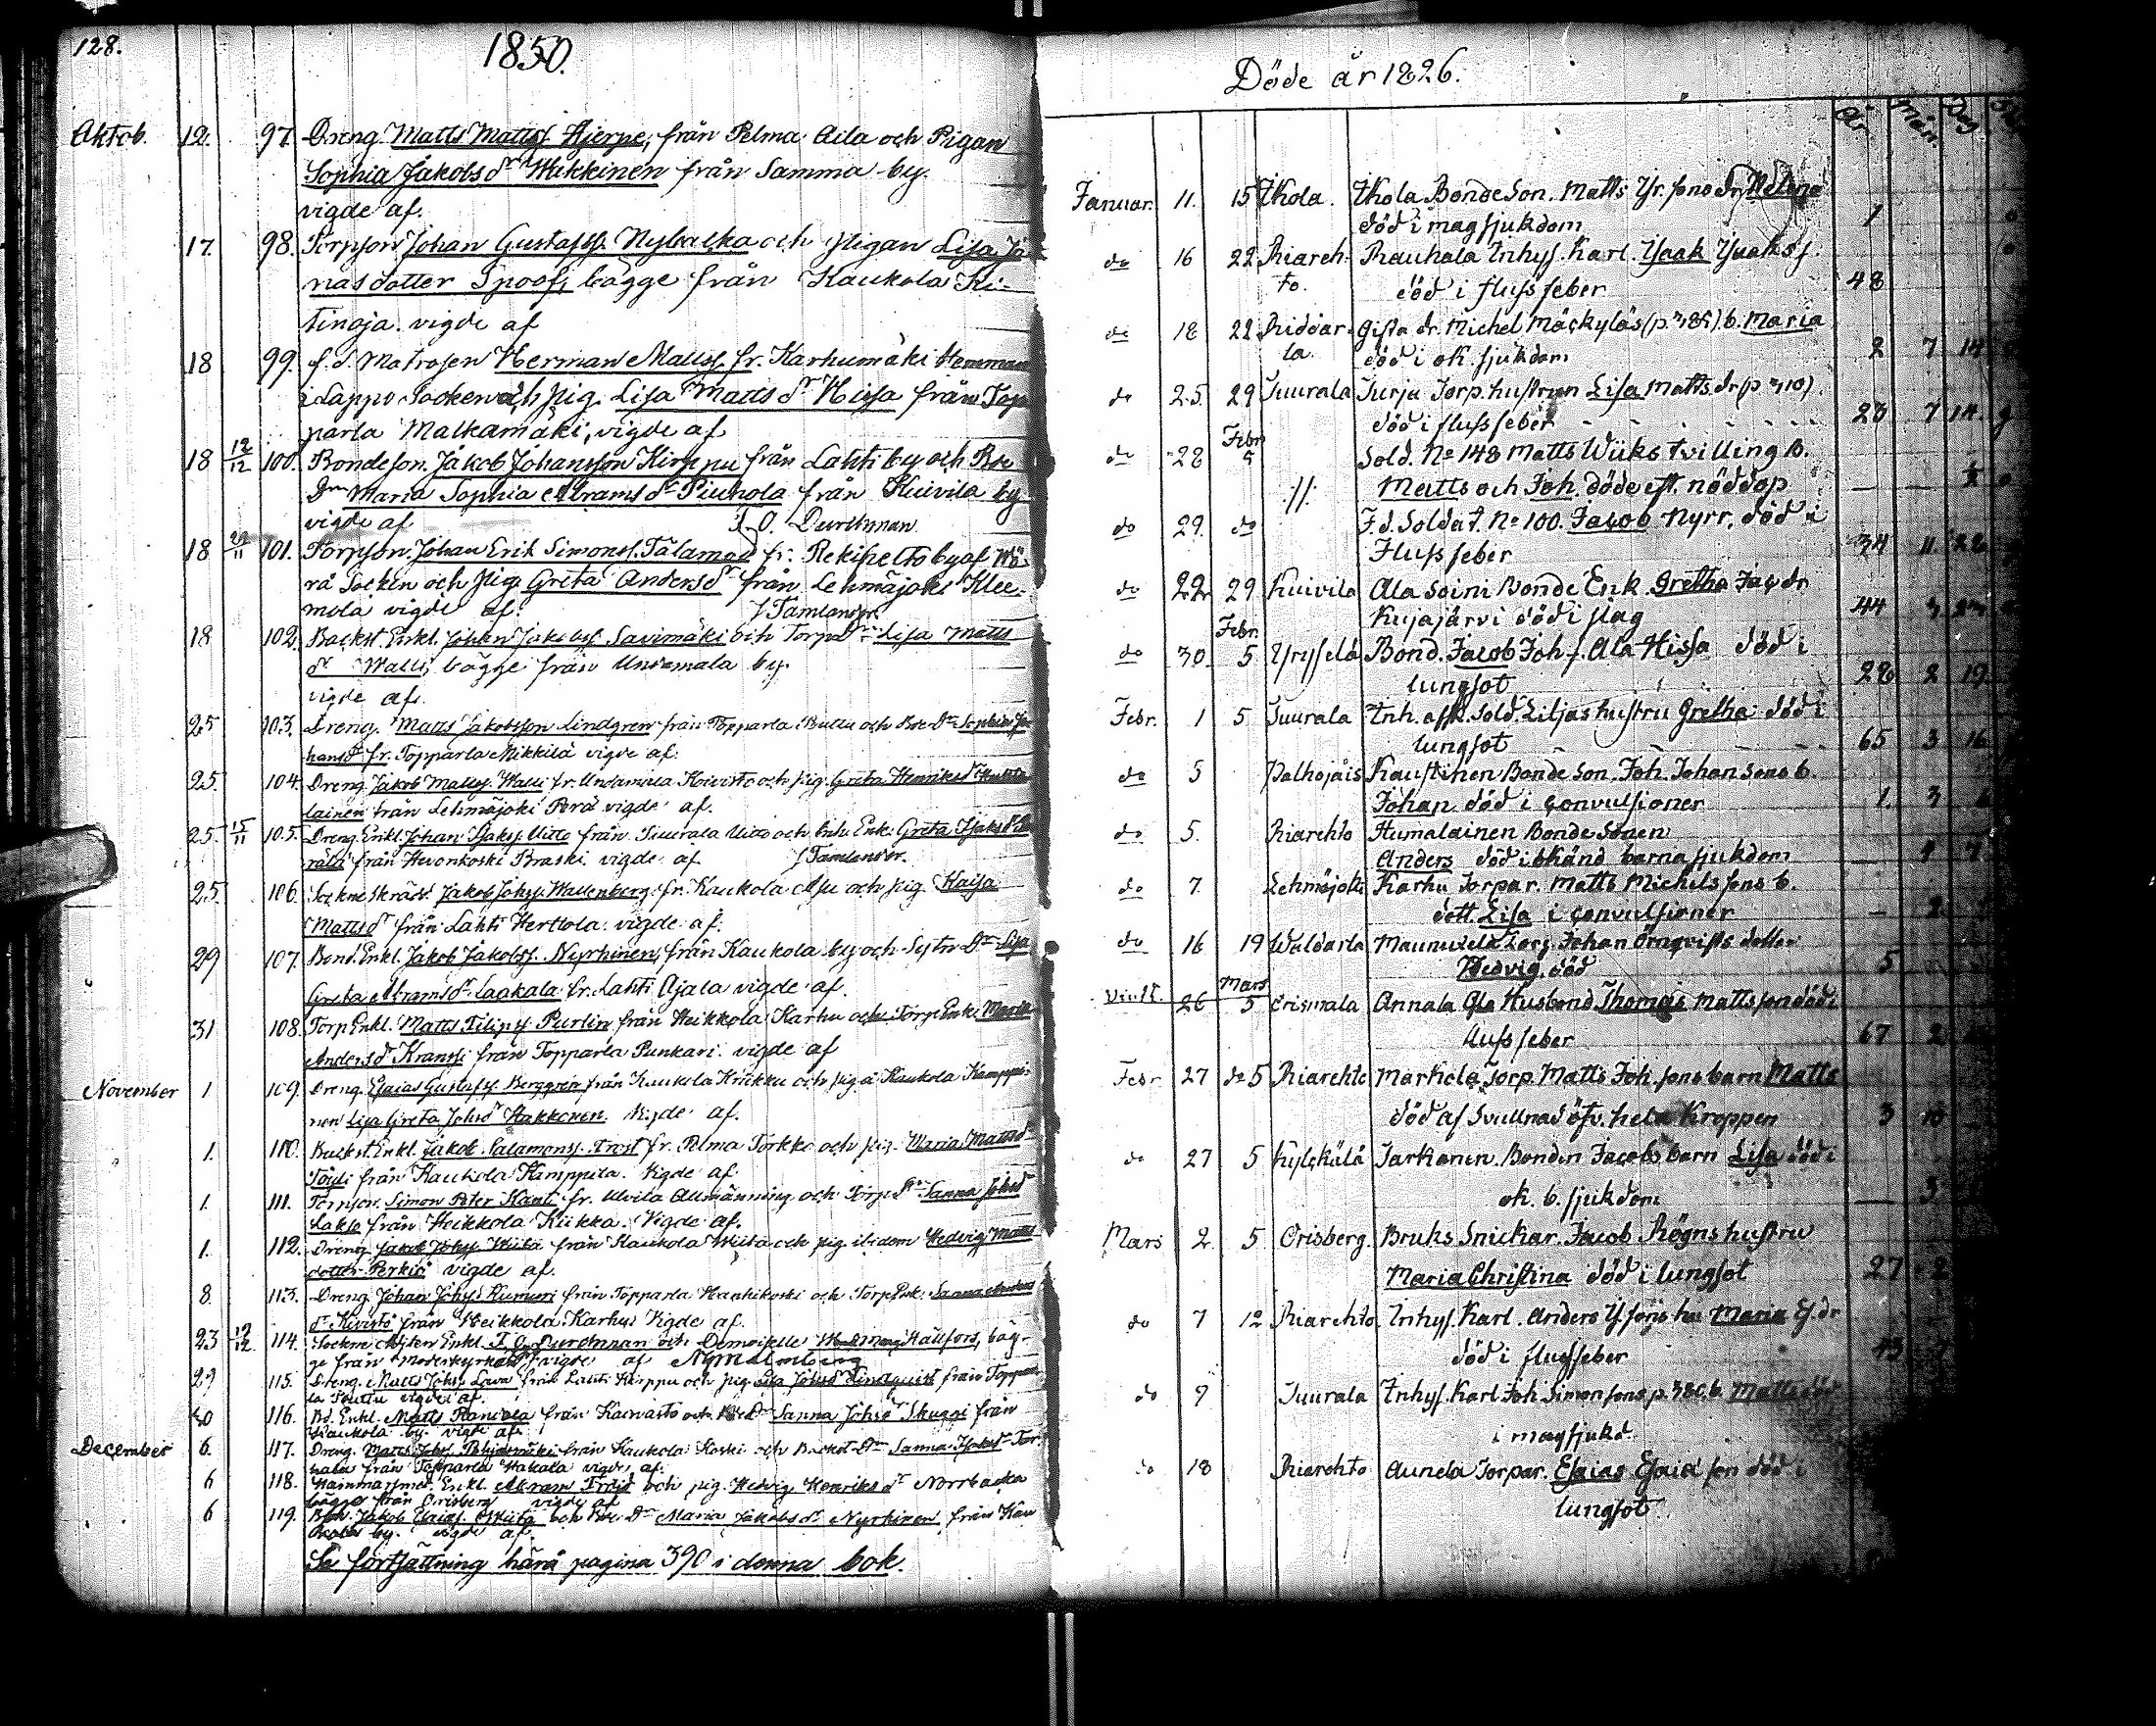 128.
1850.
Aktob. 12. 97. Dreng Matts Mattss. Hjerpe, från Pelma Aila och Pigan
Sophia Jakobs dr Wikkinen från Samma by.
vigde af.
17. 98. Torpson Johan Gustafss. Nybacka och pigan Lisa Jo-
nasdotter Spoof, bägge från Kaukola Ki-
tinoja. vigde af
18 99. f. d. Matrosen Herman Mattss. fr. Karhumäki Hemman
i Lappo Socken och pig. Lisa Matts dr Hissa från Top
parla Malkamäki, vigde af
18 12/12 100. Bondeson. Jakob Johansson Kirppu från Lahti by och Bde
Drn Maria Sophia Abrams dr Piuhola från Kuivila by
vigde af J. O. Durchman
18 101. Torpson. Johan Erik Simonss. Tälamad fr. Rekipelto by af Wö-
rå Socken och pig. Greta Anders dr från Lehmäjoki Klee-
mola vigde af. J. Tamlander.
18 102. Backst. Enkl. Johan Jakobss. Savimäki och Torpa Drn Lisa Matts
dr Walli, bägge från Undamala by.
vigde af.
25 103. Dreng. Matts Jakobsson Lindgren från Topparla Bullu och Bde Drn Sophia Jo
hans dr fr. Topparla Mikkilä vigde af.
25. 104. Dreng Jakob Mattss. Walli fr. Undamala Koivisto och pig. Greta Henriks dr
lainen från Lehmäjoki Perä vigde af.
25. 15/11 105. Dreng. Enkl. Johan Isakss. Uitto från Tuurala Uitto och Inh. Enk. Greta Isaks dr
rala från Hevonkoski Braski vigde af J. Tamlander.
25 106. Sockneskräd. Jakob Johss. Wallenberg fr. Kaukola Asu och pig. Kaisa
Matts dr från Lahti Herttola vigde af.
29 107. Bond. Enkl. Jakob Jakobss. Nyrhinen, från Kaukola by och Sytn. Drn Lisa
Greta Abrams dr Laakala fr. Lahti Ajala vigde af.
31 108. Torp Enkl. Matts Filipss. Purlin från Heikkola Karhu och Torp Enk. Maria
Anders dr Kranssi från Topparla Punkari. vigde af
November 1. 109. Dreng. Esaias Gustafss. Berggren från Kaukola Krükku och pigå Kaukola Kamppi-
nen Lisa Greta Johs dr Hakkonen. Vigde af.
1. 110. Backst. Enkl. Jakob Salamonss. Frost fr. Pelma Torkko och pig. Maria Matts dr
Töyli från Kaukola Kamppila. vigde af.
1. 111. Torpson. Simon Peter Kanti fr. Ulvila Allmänning, och Torp Drn Sanna Johs dr
Lakso från Heikkola Kiikka. Vigde af.
1. 112. Dreng Jakob Johss. Wiita från Kaukola Wiita och pig. ibidem Hedvig Matts
dotter Perkiö vigde af.
8. 113. Dreng. Johan Johss. Kummi från Topparla Hanhikoski och Torp Enk. Sanna Anders
dr Kivistö från Heikkola Karhu Vigde af.
23 12/12 114. Sockne Adj:ten Enkl. J. O. Durchman och Demoiselle Hällfors, bäg-
ge från Moderkyrkan vigde af N. Malmberg
29 115. Dreng. Matts Johss. Lava från Lahti Kirppu och pig. Lisa Johs dr Lindquist från Toppar-
la Pouttu vigde af.
30 116. Bd. Enkl. Matts Rantala från Kaivasto och Bde Drn Sanna Johs dr Skuggi från
Kaukola by. vigde af.
December 6. 117. Dreng. Matts Johss. Pohjasmäki från Kaukola Koski och Backst. Drn Sanna Isaks dr Tor-
hala från Topparla Hakala vigde af.
6 118. Hammarsmed. Enkl. Abram Fröjd och pig. Hedvig Henriks dr Norrbacka
bägge från Orisberg vigde af
6 119. Bon. Jakob Esaiss. Wiita och Bde Drn Maria Jakobs dr Nyrhinen från Kau
kola by. vigde af.
Se fortsättning härå pagina 390 i denna bok.
Döde år 1826.
År. Mån. Dag
Januar. 11. 15 Ikola. Ikola Bonde Son. Matts Yr. sons dr Helena
död i magsjukdom 1
do 16 22 Riareh- Rauhala Inhys. Karl. Isaak Isaaks s.
to. död i flussfeber 48
do 18 22 Riddar- gifta dr. Michel Mäckyläs (p. 185) b. Maria
la. död i ok. sjukdom 2 7 14
do 25. 29 Tuurala Turja Torp. hustrun Lisa Matts dr (p 10)
död i flussfeber 28 7 14.
do 28 Febr. 5 Sold. No 148 Matts Wiiks tvilling B.
Matts och Joh. döde eft. nöddop
do 29. do F. d. Soldat. No 100. Jacob Nyrr. död i
Flussfeber 34 11. 28
do 22 29 Kuivila Ala Soini Bonde Enk. Gretha Jac. dr
Kujajärvi död i slag 44
do 30 Febr. 5 Yryselä Bond. Jacob Joh. s. Ala Hissa död i
lungsot 28 2 19
Febr. 1 5 Tuurala Inh. afsk. Sold. Liljas hustru Gretha död i
lungsot 65 3 16
do 5 Palhojais Kaustinen Bonde Son. Joh. Johan Sons b.
Johan död i convulsioner 1. 3
do 5. Riarehto Humalainen Bonde Sonen
Anders död i okänd barnasjukdom
do 7. Lehmäjoki Karhu Torpar. Matts Michels sons b.
dott. Lisa i convulsioner
do 16 19 Waldarla Maunuxela Torp. Johan Örnqvists dotter
Hedvig död 5
26 Mars 5 Orismala Annala Gla Husbond Thomas Mattsson död i
flussfeber 67 2
Febr 27 do 5 Riarehto Markola Torp. Matts Joh. sons barn Matts
död af Svullnad öfv. hela Kroppen 3 10
do 27 5 Kylckälä Jarkonen. Bonden Jacobs barn Lisa död i
ok. b. sjukdom 3
Mars 2 5 Orisberg. Bruks Snickar. Jacob Rögns hustru
Maria Christina död i lungsot 27 2
do 7 12 Riarehto Inhys. Karl. Anders Y. sons hu Maria Es. dr
död i flussfeber
do 9 Tuurala Inhys. Karl Joh. Simonsons p. 380. b. Matts död
i magsjukd.
do 18 Riarehto Aunela Torpar. Esaias Esaia' son död i
lungsot